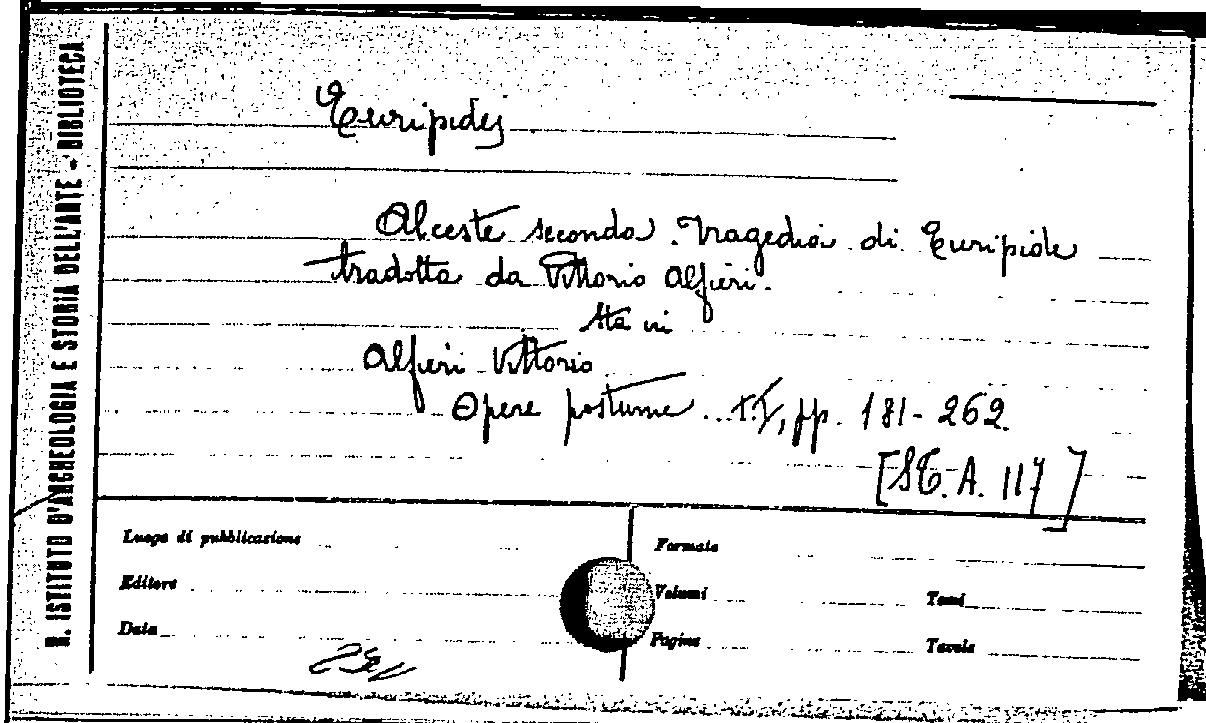 R. ISTITUTO D'ARCHEOLOGIA E STORIA DELL'ARTE - BIBLIOTECA
Euripides
Alceste seconda. Tragedia di Euripide
tradotta da Vittorio Alfieri.
Sta in
Alfieri Vittorio
Opere postume t. I, pp. 181-262.
[ST. A. 117]
Luogo di pubblicazione
Formato
Editore
Volumi
Tomi
Data
Pagine
Tavole